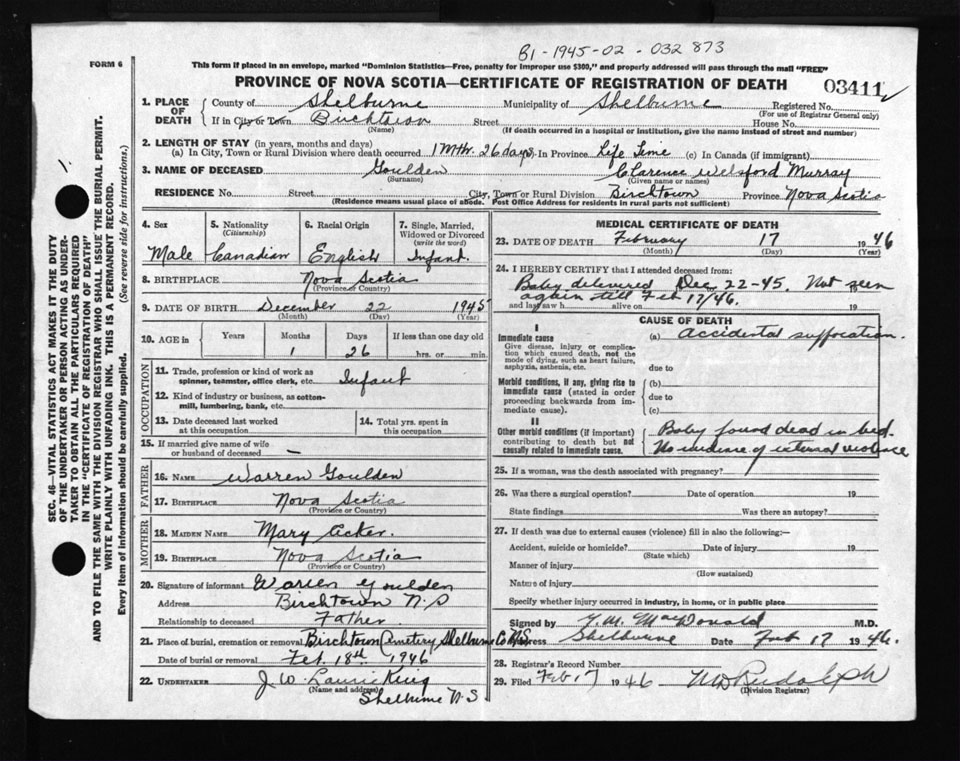 B1-1945-02-032 873
FORM 6
This form if placed in an envelope, marked "Dominion Statistics—Free, penalty for improper use $300," and properly addressed will pass through the mail "FREE"
PROVINCE OF NOVA SCOTIA—CERTIFICATE OF REGISTRATION OF DEATH
03411
1. PLACE OF DEATH
County of Shelburne Municipality of Shelburne Registered No.
(For use of Registrar General only)
If in City or Town Birchtown Street House No.
(Name) (If death occurred in a hospital or institution, give the name instead of street and number)
2. LENGTH OF STAY (in years, months and days)
(a) In City, Town or Rural Division where death occurred 1 Mth. 26 days In Province Life Time (c) In Canada (if immigrant)
3. NAME OF DECEASED Goulden Clarence Welsford Murray
(Surname) (Given name or names)
RESIDENCE No. Street City, Town or Rural Division Birchtown Province Nova Scotia
(Residence means usual place of abode. Post Office Address for residents in rural parts not sufficient)
4. Sex Male
5. Nationality (Citizenship) Canadian
6. Racial Origin English
7. Single, Married, Widowed or Divorced (write the word) Infant.
8. BIRTHPLACE Nova Scotia
(Province or Country)
9. DATE OF BIRTH December 22 1945
(Month) (Day) (Year)
10. AGE in Years Months Days If less than one day old
1 26 hrs. or min.
OCCUPATION
11. Trade, profession or kind of work as spinner, teamster, office clerk, etc. Infant
12. Kind of industry or business, as cotton-mill, lumbering, bank, etc.
13. Date deceased last worked at this occupation
14. Total yrs. spent in this occupation
15. If married give name of wife or husband of deceased —
FATHER
16. NAME Warren Goulden
17. BIRTHPLACE Nova Scotia
(Province or Country)
MOTHER
18. MAIDEN NAME Mary Acker.
19. BIRTHPLACE Nova Scotia
(Province or Country)
20. Signature of informant Warren Goulden
Address Birchtown N.S
Relationship to deceased Father.
21. Place of burial, cremation or removal Birchtown Cemetery, Shelburne Co N.S.
Date of burial or removal Feb. 18th 1946
22. UNDERTAKER J. W. Laurie King
(Name and address) Shelburne N.S
MEDICAL CERTIFICATE OF DEATH
23. DATE OF DEATH February 17 1946
(Month) (Day) (Year)
24. I HEREBY CERTIFY that I attended deceased from:
Baby delivered Dec 22-45. Not seen
again till Feb 17/46.
and last saw h alive on 19
CAUSE OF DEATH
I
Immediate cause (a) Accidental suffocation.
Give disease, injury or complication which caused death, not the mode of dying, such as heart failure, asphyxia, asthenia, etc.
due to
Morbid conditions, if any, giving rise to immediate cause (stated in order proceeding backwards from immediate cause).
(b)
due to
(c)
II
Other morbid conditions (if important) contributing to death but not causally related to immediate cause.
Baby found dead in bed.
No evidence of external violence
25. If a woman, was the death associated with pregnancy?
26. Was there a surgical operation? Date of operation 19
State findings Was there an autopsy?
27. If death was due to external causes (violence) fill in also the following:—
Accident, suicide or homicide? Date of injury 19
(State which)
Manner of injury
(How sustained)
Nature of injury
Specify whether injury occurred in industry, in home, or in public place
Signed by MacDonald M.D.
Address Shelburne Date Feb 17 1946.
28. Registrar's Record Number
29. Filed Feb 17 1946 Rudolph
(Division Registrar)
SEC. 46—VITAL STATISTICS ACT MAKES IT THE DUTY
OF THE UNDERTAKER OR PERSON ACTING AS UNDER-
TAKER TO OBTAIN ALL THE PARTICULARS REQUIRED
IN THE "CERTIFICATE OF REGISTRATION OF DEATH"
AND TO FILE THE SAME WITH THE DIVISION REGISTRAR WHO SHALL ISSUE THE BURIAL PERMIT.
WRITE PLAINLY WITH UNFADING INK. THIS IS A PERMANENT RECORD.
Every item of information should be carefully supplied. (See reverse side for instructions.)